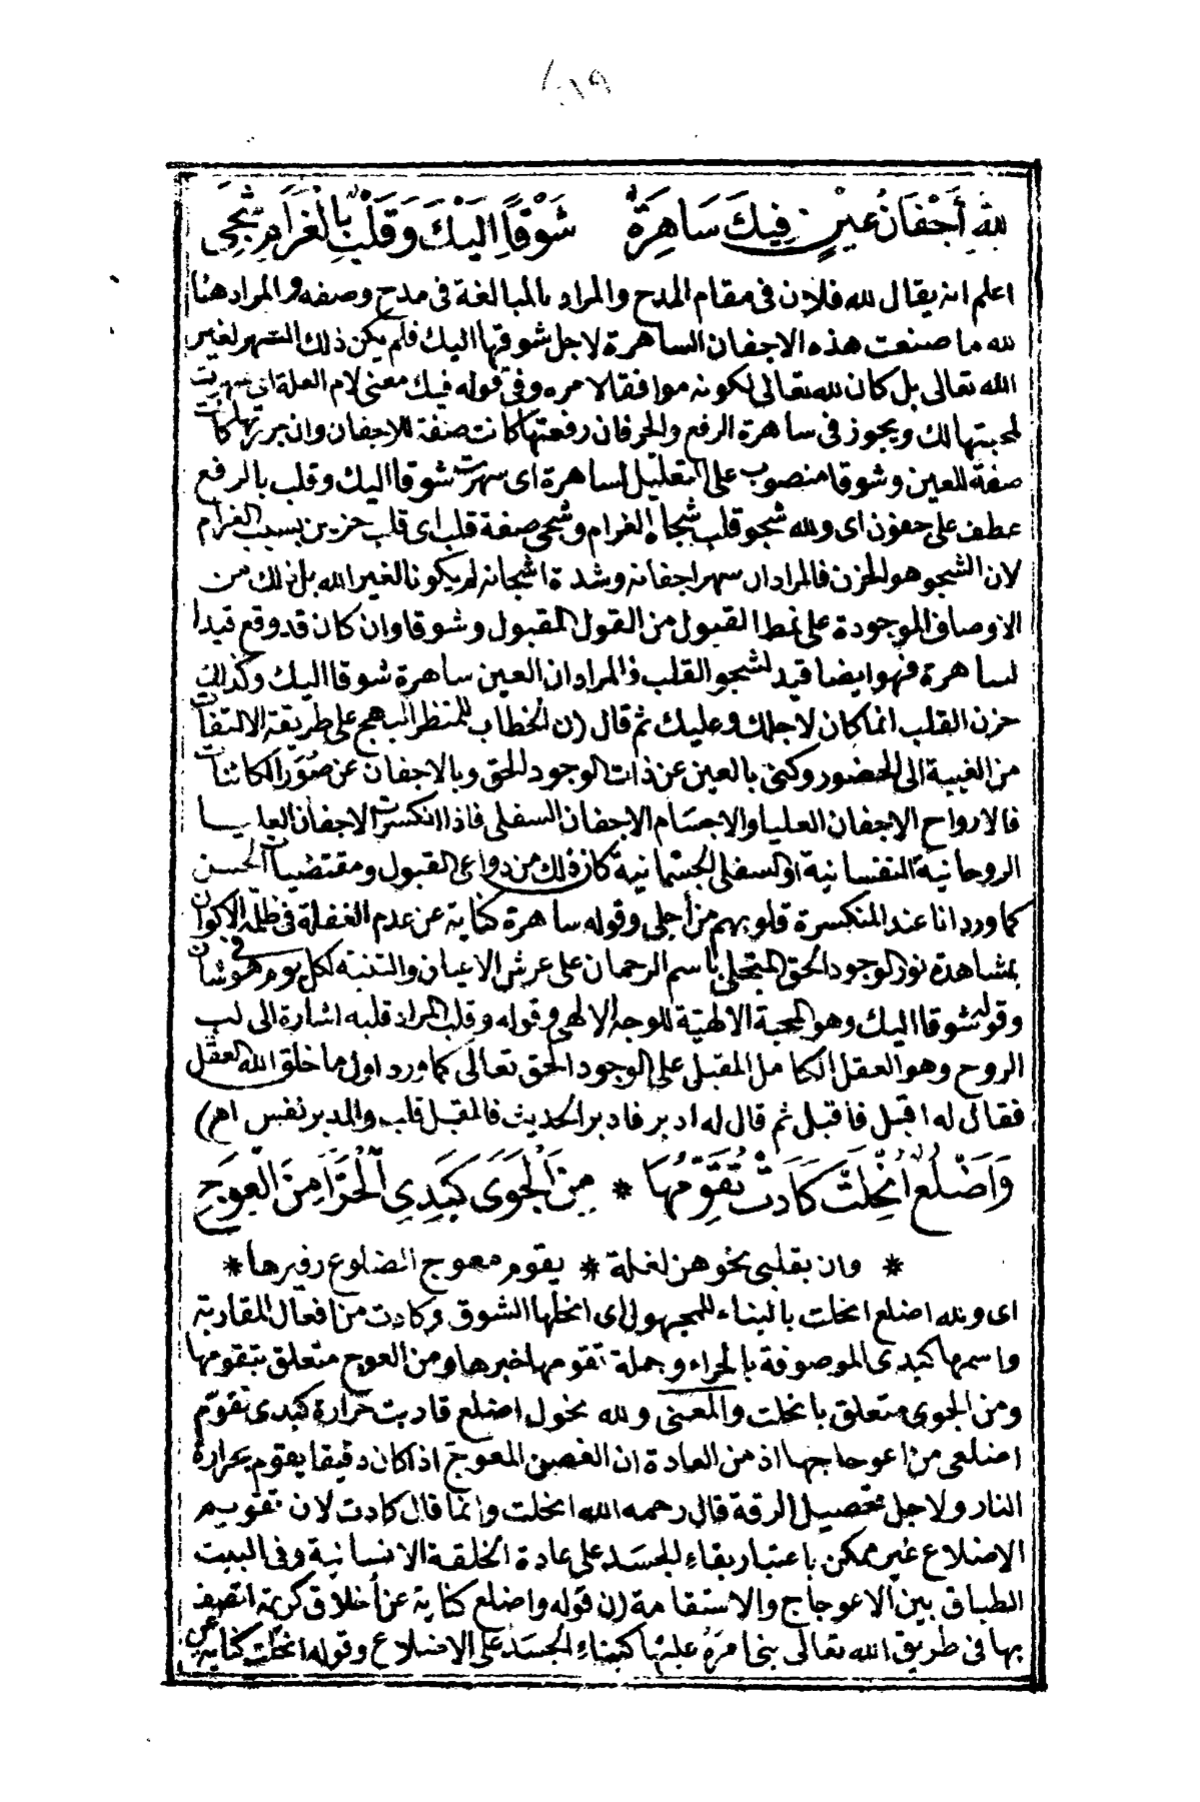 لِلّٰهِ أَجْفَانُ عَيْنٍ فِيكَ سَاهِرَةٌ شَوْقًا اِلَيْكَ وَقَلْبٌ بِالْغَرَامِ شَجِى
اعلم انه يقال لله فلان فى مقام المدح والمراد بالمبالغة فى مدح وصفه والمراد هنا
لله ما صنعت هذه الاجفان الساهرة لاجل شوقها اليك فلم يكن ذلك السهر لغير
الله تعالى بل كان لله تعالى لكونه موافقا لامره وفى قوله فيك معنى لام العلة اى سهرت
لمحبتها لك ويجوز فى ساهرة الرفع والجر فان رفعتها كانت صفة للاجفان وان جررتها كانت
صفة للعين وشوقا منصوب على التعليل لساهرة اى سهرت شوقا اليك وقلب بالرفع
عطف على جفون اى ولله شجو قلب شجاه الغرام وشجى صفة قلب اى قلب حزين بسبب الغرام
لان الشجو هو الحزن فالمراد ان سهر اجفانه وشدة اشجانه لم يكونا لغير الله بل ذلك من
الاوصاف الموجودة على نمط القبول من القول المقبول وشوقا وان كان قد وقع قيدا
لساهرة فهو ايضا قيد لشجو القلب فالمراد ان العين ساهرة شوقا اليك وكذلك
حزن القلب انما كان لاجلك وعليك ثم قال (ن الخطاب للمنظر البهج على طريقة الالتفات
من الغيبة الى الحضور وكنى بالعين عن ذات الوجود الحق وبالاجفان عن صُوَر الكائنات
فالارواح الاجفان العليا والاجسام الاجفان السفلى فاذا انكسرت الاجفان العليا
الروحانية النفسانية او السفلى الجسمانية كان ذلك من دواعى القبول ومقتضيات الحسن
كما ورد انا عند المنكسرة قلوبهم من أجلى وقوله ساهرة كناية عن عدم الغفلة فى ظلمة الاكوان
بمشاهدة نور الوجود الحق المتجلى باسم الرحمان على عرش الاعيان والتنبه لكل يوم هو فى شان
وقوله شوقا اليك وهو المحبة الالهيّة للوجه الالهى وقوله وقلب المراد قلبه اشارة الى لب
الروح وهو العقل الكامل المقبل على الوجود الحق تعالى كما ورد اول ما خلق الله العقل
فقال له اقبل فأقبل ثم قال له ادبر فادبر الحديث فالمقبل قلب والمدبر نفس اهـ)
وَاَضْلُعٌ اُنْحِلَتْ كَادَتْ تُقَوِّمُهَا * مِنَ الْجَوَى كَبِدِى الْحَرَّا مِنَ الْعِوَجِ
* وان بقلبى نحوهن لغلة * يقوم معوج الضلوع زفيرها *
اى ولله اضلع انحلت بالبناء للمجهول اى انحلها الشوق وكادت من افعال المقاربة
واسمها كبدى الموصوفة بالحراء وجملة تقومها خبرها ومن العوج متعلق بتقومها
ومن الجوى متعلق بانحلت والمعنى ولله نحول اضلع قاربت حرارة كبدى تقوّم
اضلعى من اعوجاجها اذ من العادة ان الغصن المعوج اذا كان دقيقا يقوم بحرارة
النار ولاجل تحصيل الرقة قال رحمه الله انحلت وانما قال كادت لان تقويم
الاضلاع غير ممكن باعتبار بقاء الجسد على عادة الخلقة الانسانية وفى البيت
الطباق بين الاعوجاج والاستقامة (ن قوله واضلع كناية عن أخلاق كريمة اتصف
بها فى طريق الله تعالى بنى امره عليها كبناء الجسد على الاضلاع وقوله انحلت كناية عن